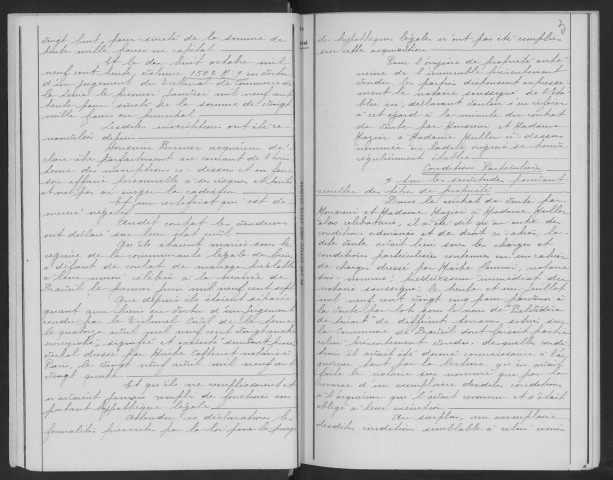 vingt huit, pour sûreté de la somme de
trente mille francs en capital
Et le dix huit octobre mil
neuf cent trente, volume 1509 N° 9 en vertu
d'un jugement du tribunal de commerce de
la Seine le premier janvier mil neuf cent
trente pour sûreté de la somme de vingt
mille francs en principal
Lesdites inscriptions ont été re-
nouvelées depuis
Monsieur Bernier acquéreur dé-
clare être parfaitement au courant de l'exis-
tence des inscriptions ci-dessus et en faire
son affaire personnelle à ses risques et périls
et ne pas en exiger la radiation
Et qu'un certificat qui est de-
meuré négatif
Audit contrat les vendeurs
ont déclaré sur leur état civil
Qu'ils étaient mariés sous le
régime de la communauté légale de biens
à défaut de contat de mariage préalable
à leur union célébrée à la mairie de
le premier juin mil neuf cent sept
Que depuis ils étaient séparés
quant aux biens en vertu d'un jugement
rendu par le tribunal civil de la Seine
le quatorze avril mil neuf cent vingt quatre
enregistré, signifié et exécuté suivant procès
verbal dressé par Maître notaire à
Paris, le vingt neuf avril mil neuf cent
vingt quatre
Et qu'ils ne remplissaient et
n'avaient jamais rempli de fonctions em-
portant hypothèque légale
Attendu ces déclarations les
formalités prescrites par la loi pour la purge
des hypothèques légales n'ont pas été remplies
sur cette acquisition
Pour l'origine de propriété anté-
rieure de l'immeuble présentement
vendu les parties dispensent expressé-
ment le notaire soussigné de l'éta-
blir ici, déclarant vouloir s'en référer
à cet égard à la minute du contrat
de vente par Monsieur et Madame
à Madame Muller ci-dessus
énoncée où ladite origine se trouve
régulièrement établie
Conditions Particulières
et sur les servitudes pouvant
résulter des titres de propriété
Dans le contrat de vente par
Monsieur et Madame à Madame Muller
alors célibataire, il a été dit qu'en outre des
conditions ordinaires et de droit ci-après la-
dite vente avait lieu sous les charges et
conditions particulières contenues en un cahier
de charges dressé par Maître notaire
sus nommé, prédécesseur immédiat du
notaire soussigné, le trente et un juillet
mil neuf cent vingt cinq pour parvenir à
la vente par lots sous le nom de
de différents terrains situés sur
la commune de dont faisait partie
celui présentement vendu, desquelles condi-
tions il avait été donné connaissance à l'ac-
quéreur tant par la lecture qui en avait
faite le notaire sus nommé que par la
remise d'un exemplaire desdites conditions
à l'acquéreur qui l'avait reconnu et s'était
obligé à leur exécution
Au surplus, un exemplaire
desdites conditions semblable à celui remis